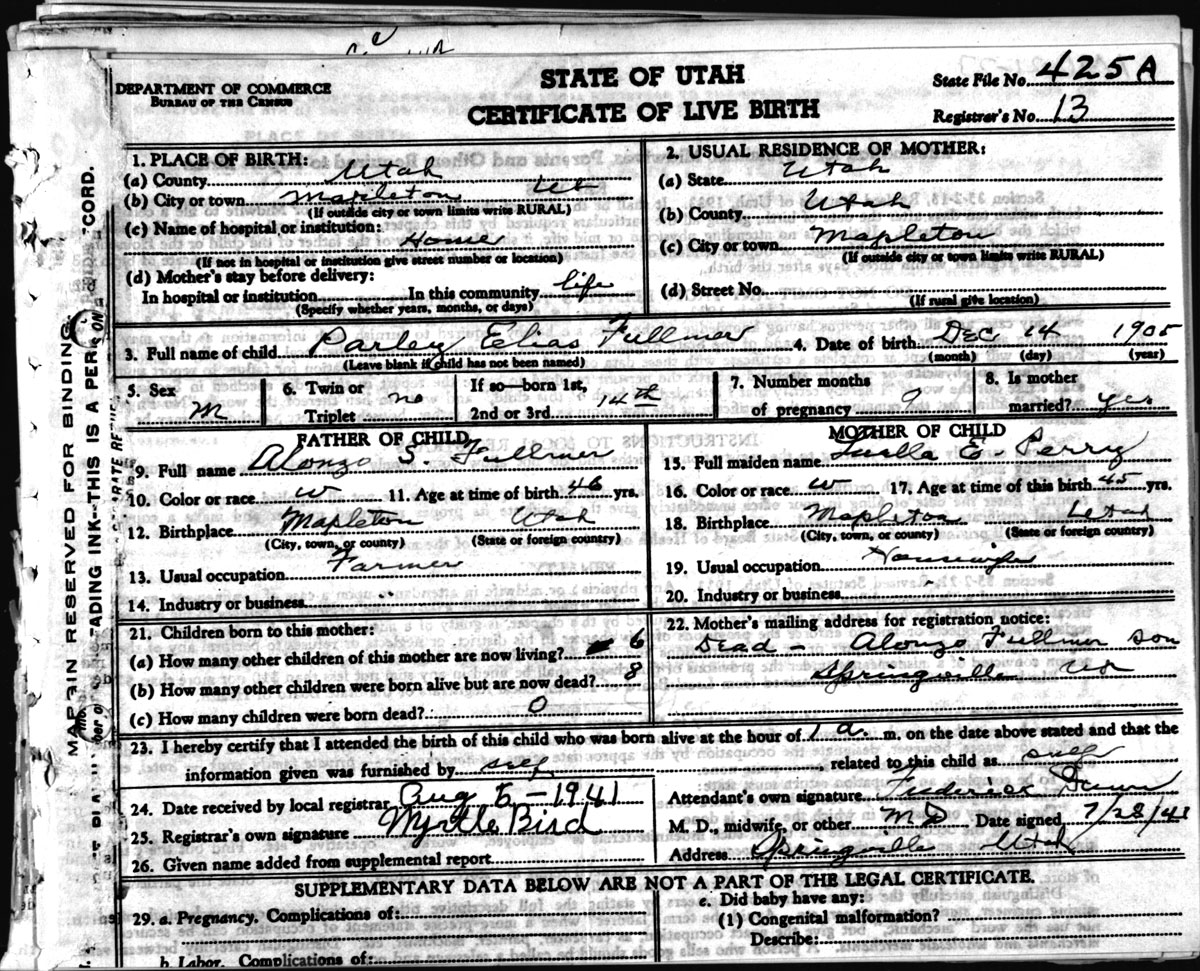 DEPARTMENT OF COMMERCE
BUREAU OF THE CENSUS
STATE OF UTAH
CERTIFICATE OF LIVE BIRTH
State File No. 425A
Registrar's No. 13
MARGIN RESERVED FOR BINDING
1. PLACE OF BIRTH:
(a) County Utah
(b) City or town Mapleton Ut
(If outside city or town limits write RURAL)
(c) Name of hospital or institution:
Home
(If not in hospital or institution give street number or location)
(d) Mother's stay before delivery:
In hospital or institution In this community life
(Specify whether years, months, or days)
2. USUAL RESIDENCE OF MOTHER:
(a) State Utah
(b) County Utah
(c) City or town Mapleton
(If outside city or town limits write RURAL)
(d) Street No.
(If rural give location)
3. Full name of child Parley Elias Fullmer 4. Date of birth Dec 14 1905
(Leave blank if child has not been named) (month) (day) (year)
5. Sex M
6. Twin or Triplet no
If so—born 1st, 2nd or 3rd 14th
7. Number months of pregnancy 9
8. Is mother married? yes
FATHER OF CHILD
9. Full name Alonzo S. Fullmer
10. Color or race w 11. Age at time of birth 46 yrs.
12. Birthplace Mapleton Utah
(City, town, or county) (State or foreign country)
13. Usual occupation Farmer
14. Industry or business
MOTHER OF CHILD
15. Full maiden name Luella E. Perry
16. Color or race w 17. Age at time of this birth 45 yrs.
18. Birthplace Mapleton Utah
(City, town, or county) (State or foreign country)
19. Usual occupation Housewife
20. Industry or business -
21. Children born to this mother:
(a) How many other children of this mother are now living? 6
(b) How many other children were born alive but are now dead? 8
(c) How many children were born dead? 0
22. Mother's mailing address for registration notice:
Dead - Alonzo Fullmer son
Springville Ut
23. I hereby certify that I attended the birth of this child who was born alive at the hour of 1 a. m. on the date above stated and that the
information given was furnished by self, related to this child as self
24. Date received by local registrar Aug 5 - 1941
25. Registrar's own signature Myrtle Bird
26. Given name added from supplemental report
Attendant's own signature Frederick Dunn
M. D., midwife, or other M D Date signed 7/28/41
Address Springville Utah
SUPPLEMENTARY DATA BELOW ARE NOT A PART OF THE LEGAL CERTIFICATE.
29. a. Pregnancy. Complications of:
b. Labor. Complications of:
e. Did baby have any:
(1) Congenital malformation?
Describe: